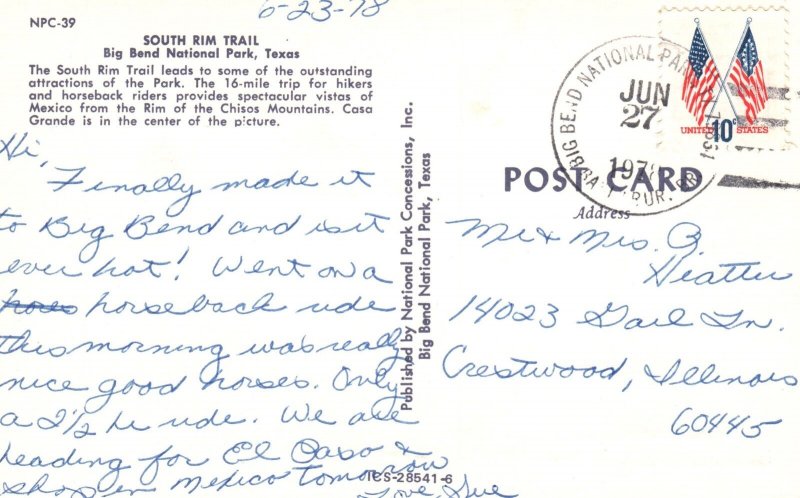 6-23-78
NPC-39
SOUTH RIM TRAIL
Big Bend National Park, Texas
The South Rim Trail leads to some of the outstanding
attractions of the Park. The 16-mile trip for hikers
and horseback riders provides spectacular vistas of
Mexico from the Rim of the Chisos Mountains. Casa
Grande is in the center of the picture.
Hi,
Finally made it
to Big Bend and is it
ever hot! Went on a
horseback ride
this morning was really
nice good horses. Only
a 2½ hr ride. We are
heading for El Paso &
shop in Mexico tomorrow
Love, Sue
Published by National Park Concessions, Inc.
Big Bend National Park, Texas
ICS-28541-6
BIG BEND NATIONAL PARK
JUN
27
1978
RUR.
UNITED 10c STATES
POST CARD
Address
Mr & Mrs. B.
Hiatter
14023 Gail Ln.
Crestwood, Illinois
60445